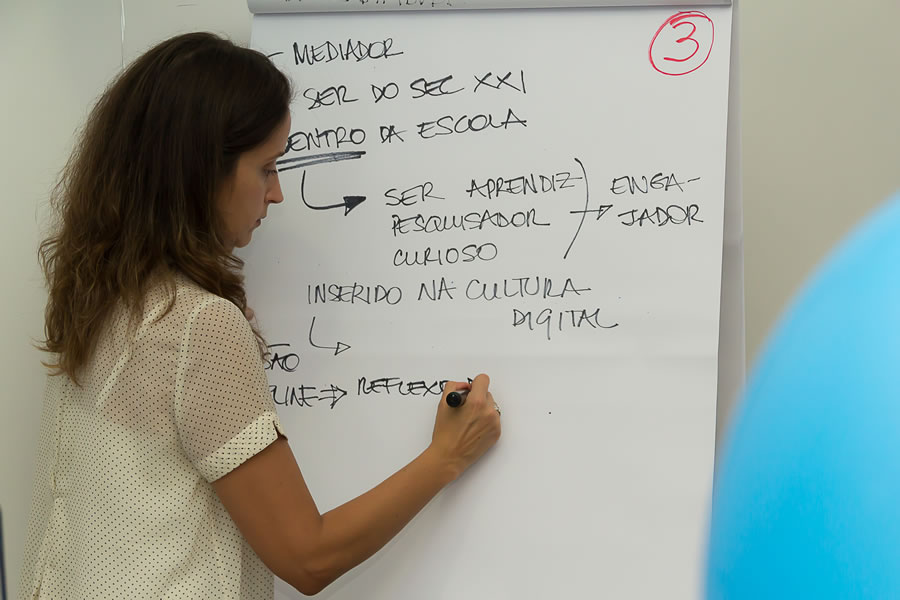 3
- MEDIADOR
SER DO SEC XXI
DENTRO DA ESCOLA
SER APRENDIZ
PESQUISADOR
CURIOSO
ENGA-
JADOR
INSERIDO NA CULTURA
DIGITAL
SÃO
LINE